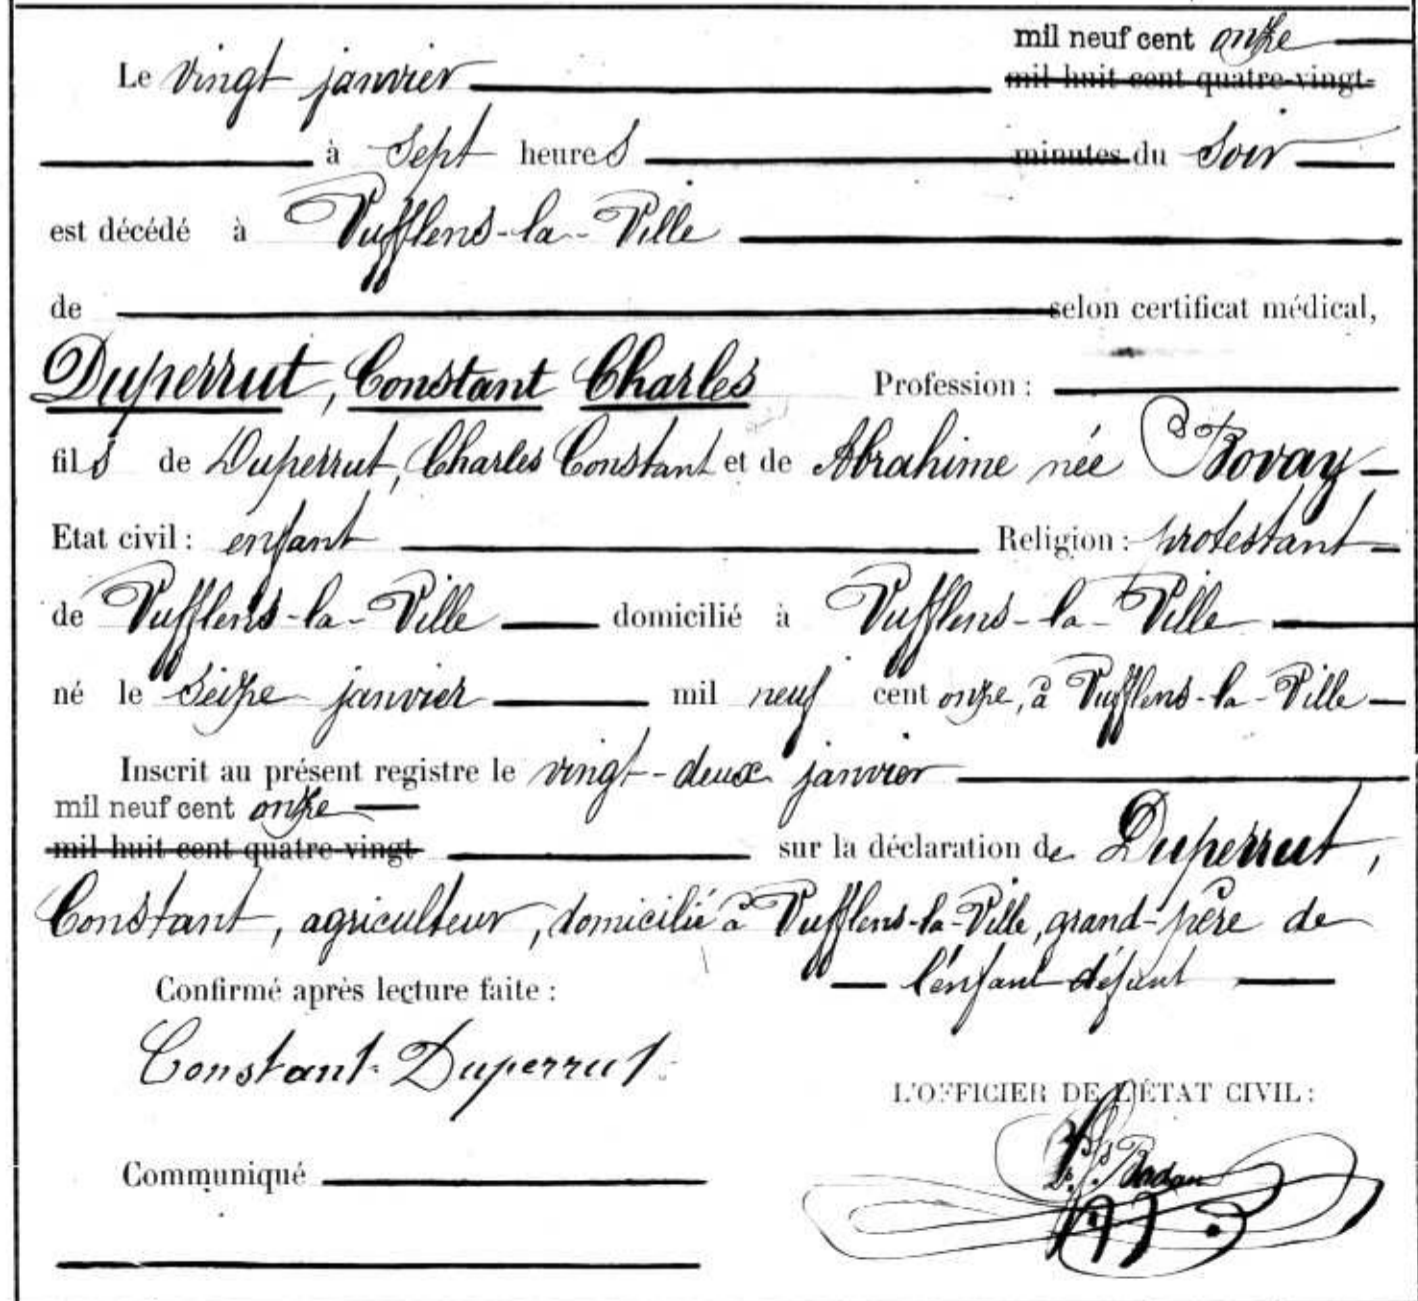 mil neuf cent onze
Le vingt janvier mil huit cent quatre-vingt-
à sept heures minutes du soir
est décédé à Vufflens-la-Ville
de selon certificat médical,
Duperrut, Constant Charles Profession :
fils de Duperrut, Charles Constant et de Abrahime née Bovay
Etat civil : enfant Religion : protestant
de Vufflens-la-Ville domicilié à Vufflens-la-Ville
né le seize janvier mil neuf cent onze, à Vufflens-la-Ville
Inscrit au présent registre le vingt-deux janvier
mil neuf cent onze
mil huit cent quatre-vingt sur la déclaration de Duperrut,
Constant, agriculteur, domicilié à Vufflens-la-Ville, grand-père de
l'enfant défunt
Confirmé après lecture faite :
Constant Duperrut
L'OFFICIER DE L'ÉTAT CIVIL :
Communiqué